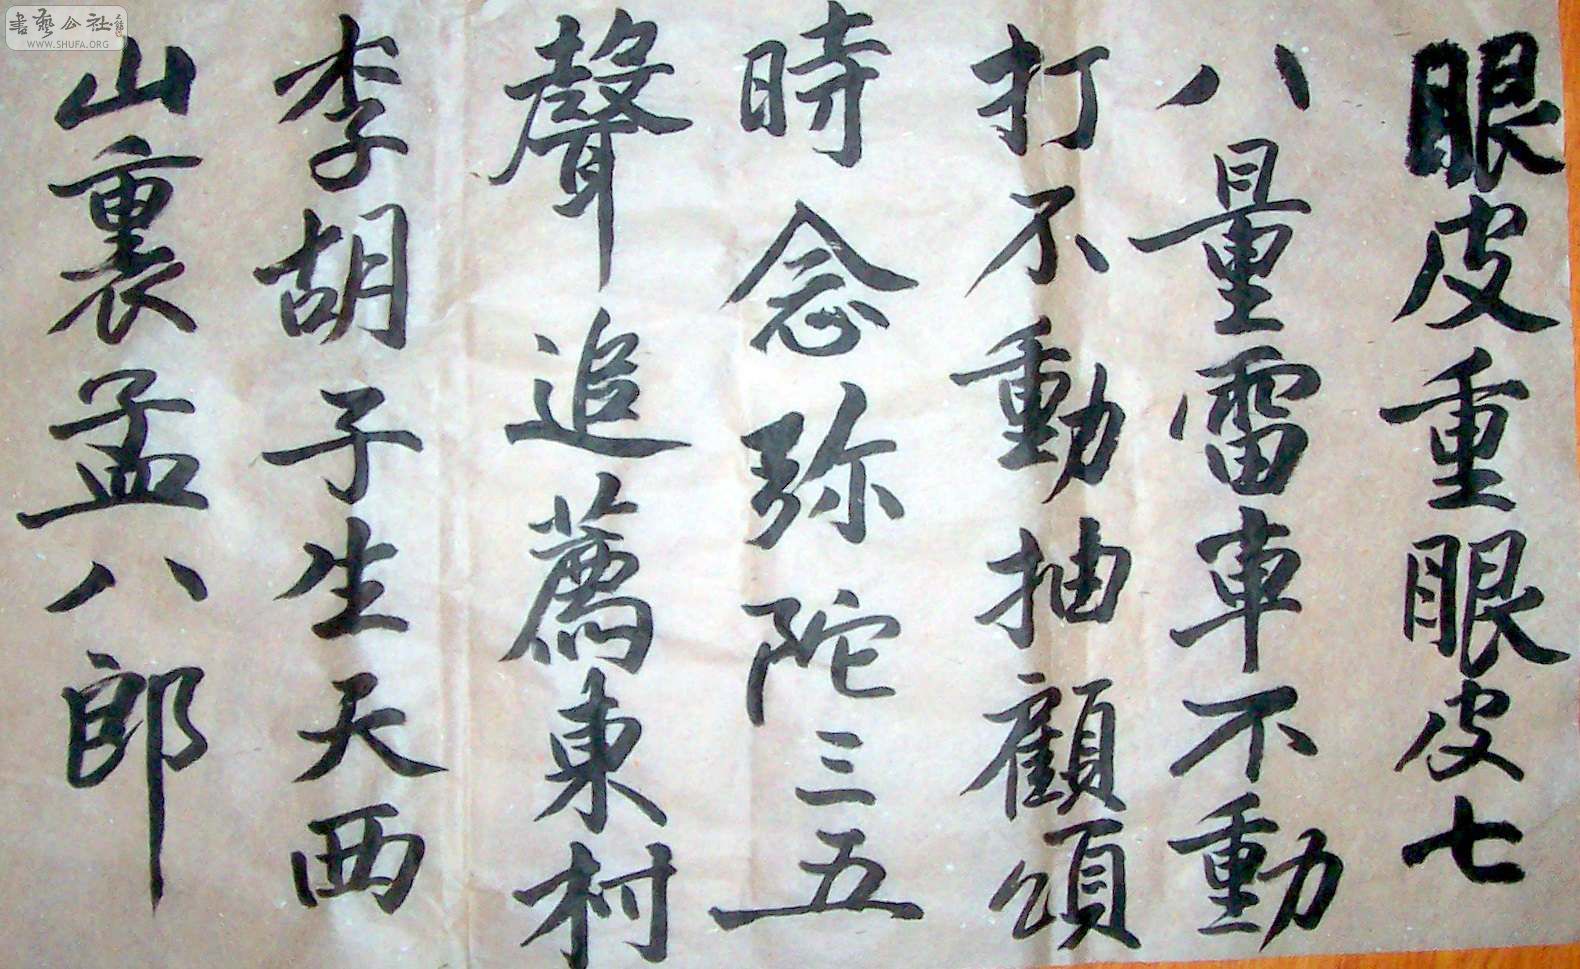 眼皮重眼皮七
八量雷車不動
打不動抽顧頌
時念弥陀三五
聲追薦東村
李胡子生天西
山裏孟八郎
書藝公社
WWW.SHUFA.ORG